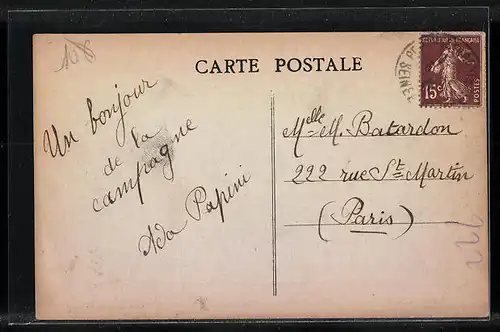 108
CARTE POSTALE
Un bonjour
de la
campagne
Ada Papini
Melle M. Batardon
222 rue St Martin
(Paris)
RÉPUBLIQUE FRANÇAISE
15c
POSTES
SEINE